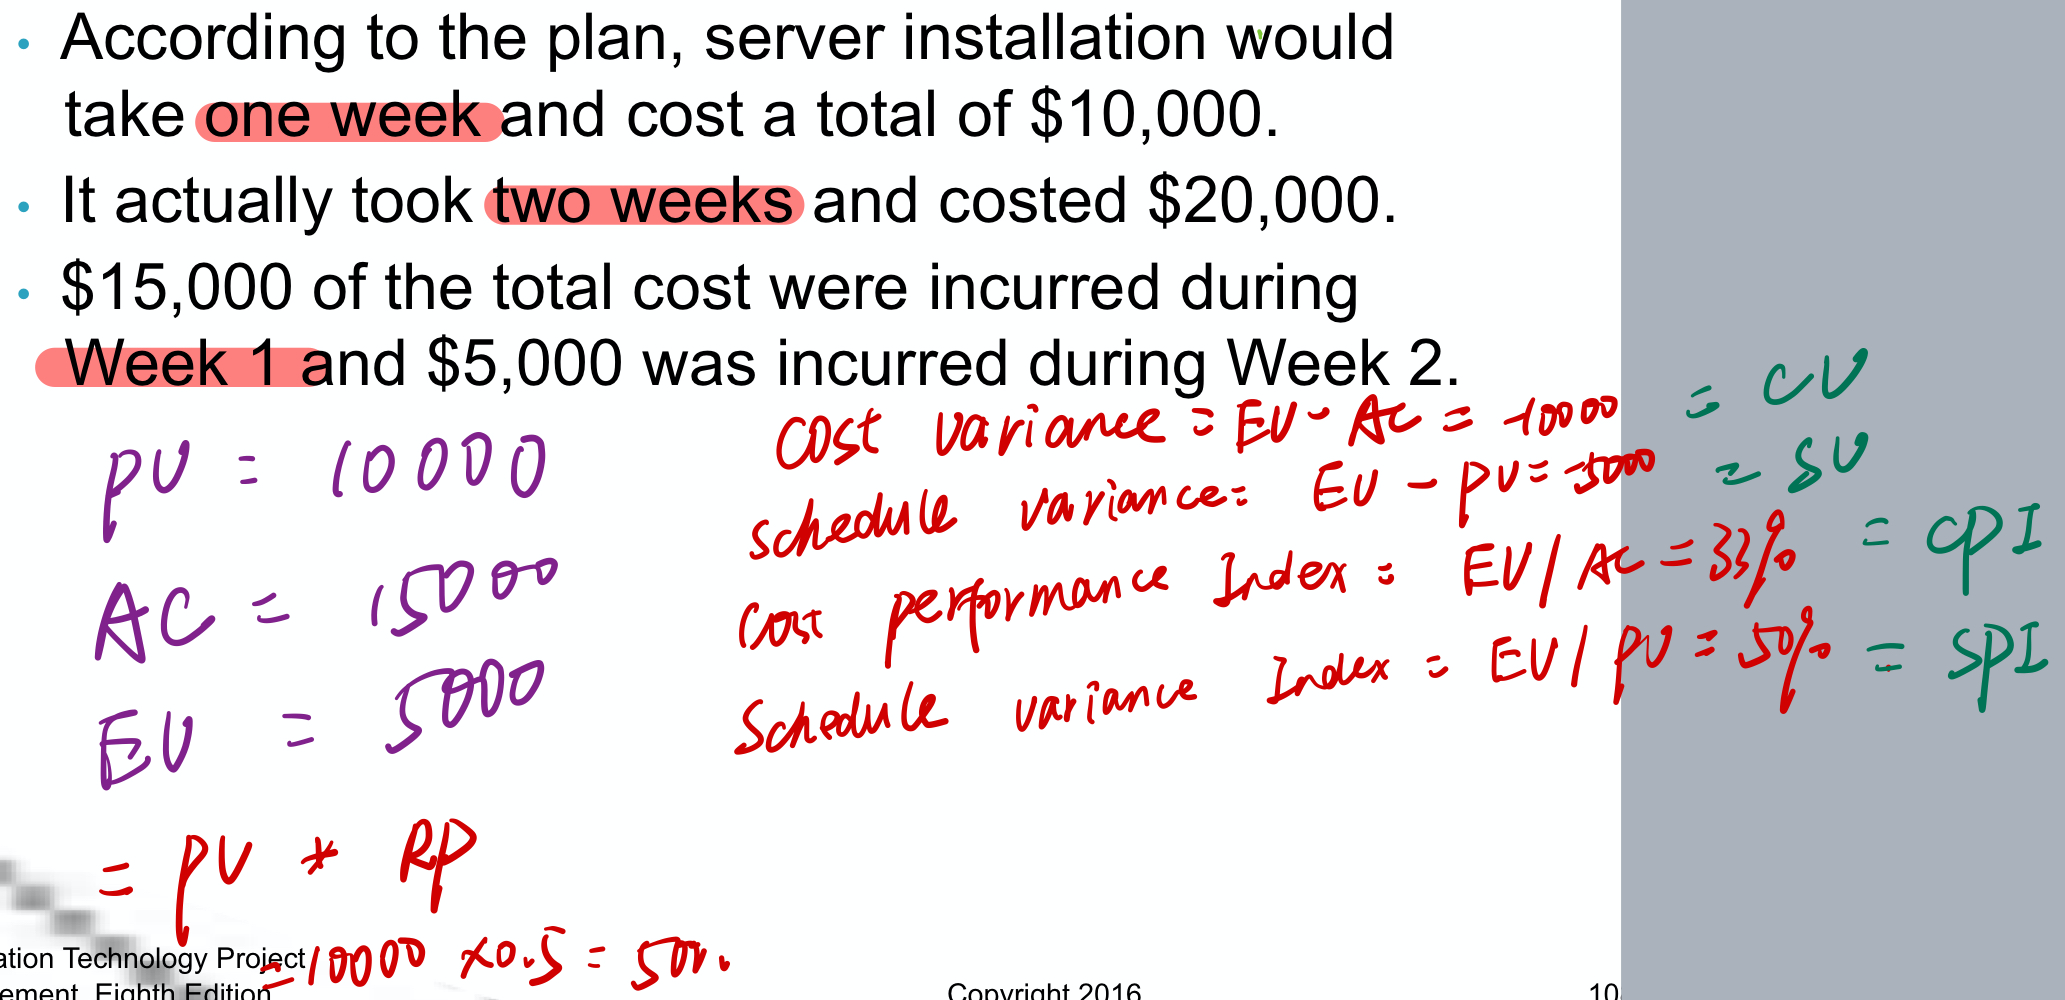 • According to the plan, server installation would
take one week and cost a total of $10,000.
• It actually took two weeks and costed $20,000.
• $15,000 of the total cost were incurred during
Week 1 and $5,000 was incurred during Week 2.
cost variance = EV - AC = -10000 = CV
PV = 10000
schedule variance = EV - PV = -5000 = SV
cost performance Index = EV / AC = 33% = CPI
AC = 15000
Schedule variance Index = EV / PV = 50% = SPI
EV = 5000
= PV * RP
= 10000 × 0.5 = 500.
ation Technology Project
ement, Eighth Edition
Copyright 2016
10